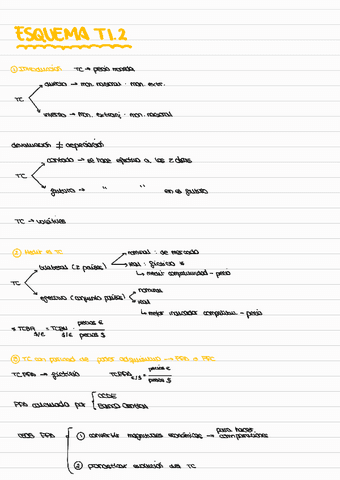 ESQUEMA T1.2
① Introducción TC → precio moneda
directo → mon. nacional · mon. extr.
TC
inverso → mon. extranj · mon. nacional
devaluación ≠ depreciación
contado → se hace efectivo a los 2 días
TC
futuro → " " en el futuro
TC → variables
② Medir el TC
bilateral (2 países)
nominal : de mercado
real : ficticio *
↳ medir competitividad - precio
TC
efectivo (conjunto países)
nominal
real
↳ mejor indicador competitiv. - precio
* TCBR $/€ = TCBN $/€ · precios € / precios $
③ TC con paridad de poder adquisitivo → PPA o PPC
TC PPA → ficticio TCPPA €/$ = precios € / precios $
PPA calculado por
OCDE
Banco Central
usos PPA
① convertir magnitudes económicas → para hacer comparaciones
② pronosticar evolución del TC